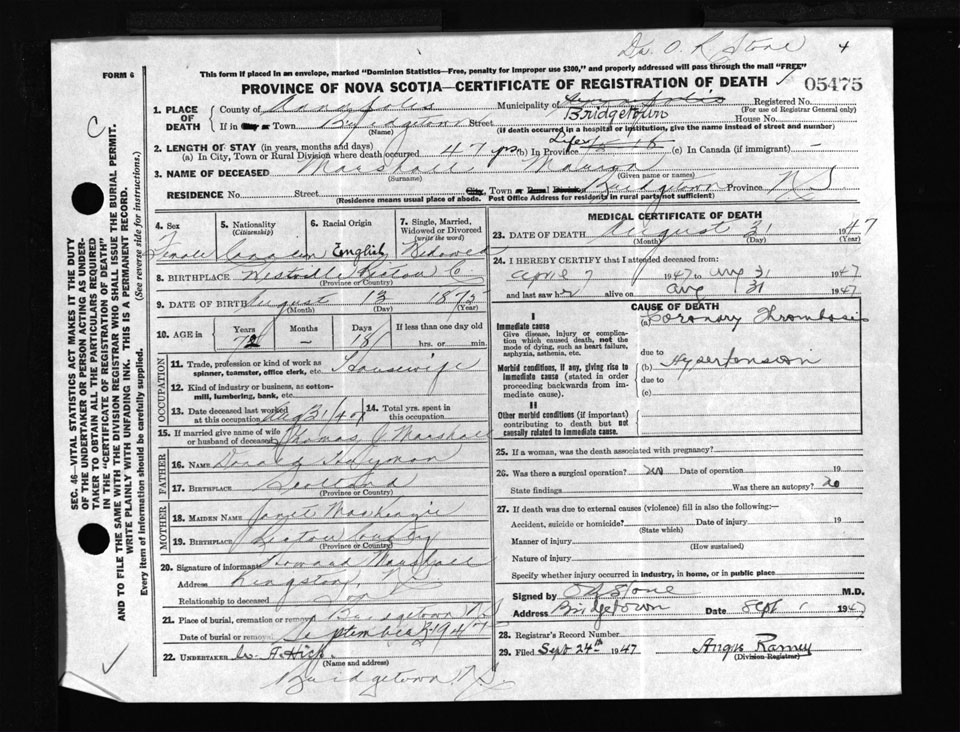 Dr. O. R. Stone
4
FORM 6
This form if placed in an envelope, marked "Dominion Statistics—Free, penalty for improper use $300," and properly addressed will pass through the mail "FREE"
PROVINCE OF NOVA SCOTIA—CERTIFICATE OF REGISTRATION OF DEATH
05475
1. PLACE OF DEATH
County of Annapolis Municipality of Registered No.
(For use of Registrar General only)
If in City or Town Bridgetown Street Bridgetown House No.
(Name) (If death occurred in a hospital or institution, give the name instead of street and number)
2. LENGTH OF STAY (in years, months and days)
(a) In City, Town or Rural Division where death occurred 47 yrs (b) In Province Life (c) In Canada (if immigrant) —
3. NAME OF DECEASED Marshall
(Surname) (Given name or names)
RESIDENCE No. Street City, Town or Rural Division Bridgetown Province N S
(Residence means usual place of abode. Post Office Address for residents in rural parts not sufficient)
4. Sex Female
5. Nationality (Citizenship) Canadian
6. Racial Origin English
7. Single, Married, Widowed or Divorced (write the word) Widowed
8. BIRTHPLACE Westville Pictou Co
(Province or Country)
9. DATE OF BIRTH August 13 1875
(Month) (Day) (Year)
10. AGE in Years Months Days If less than one day old
72 — 18 hrs. or min.
OCCUPATION
11. Trade, profession or kind of work as spinner, teamster, office clerk, etc. Housewife
12. Kind of industry or business, as cotton-mill, lumbering, bank, etc.
13. Date deceased last worked at this occupation Aug 31/40
14. Total yrs. spent in this occupation
15. If married give name of wife or husband of deceased Thomas J Marshall
FATHER
16. NAME Donald
17. BIRTHPLACE Scotland
(Province or Country)
MOTHER
18. MAIDEN NAME Janet MacKenzie
19. BIRTHPLACE Pictou County
(Province or Country)
20. Signature of informant Howard Marshall
Address Kingston, N S
Relationship to deceased Son
21. Place of burial, cremation or removal Bridgetown N S
Date of burial or removal September 1947
22. UNDERTAKER W. A. Hicks
(Name and address)
Bridgetown N S
MEDICAL CERTIFICATE OF DEATH
23. DATE OF DEATH August 31 1947
(Month) (Day) (Year)
24. I HEREBY CERTIFY that I attended deceased from:
April 7 1947 to Aug 31 1947
and last saw her alive on Aug 31 1947
CAUSE OF DEATH
I
Immediate cause
Give disease, injury or complication which caused death, not the mode of dying, such as heart failure, asphyxia, asthenia, etc.
(a) Coronary Thrombosis
due to
Morbid conditions, if any, giving rise to immediate cause (stated in order proceeding backwards from immediate cause).
(b) Hypertension
due to
(c)
II
Other morbid conditions (if important) contributing to death but not causally related to immediate cause.
25. If a woman, was the death associated with pregnancy?
26. Was there a surgical operation? no Date of operation 19
State findings Was there an autopsy? no
27. If death was due to external causes (violence) fill in also the following:—
Accident, suicide or homicide? Date of injury 19
(State which)
Manner of injury
(How sustained)
Nature of injury
Specify whether injury occurred in industry, in home, or in public place
Signed by O R Stone M.D.
Address Bridgetown Date Sept 1 1947
28. Registrar's Record Number
29. Filed Sept 24th 1947 Angus Ramey
(Division Registrar)
SEC. 46—VITAL STATISTICS ACT MAKES IT THE DUTY
OF THE UNDERTAKER OR PERSON ACTING AS UNDERTAKER TO OBTAIN ALL THE PARTICULARS REQUIRED
IN THE "CERTIFICATE OF REGISTRATION OF DEATH"
AND TO FILE THE SAME WITH THE DIVISION REGISTRAR WHO SHALL ISSUE THE BURIAL PERMIT.
WRITE PLAINLY WITH UNFADING INK. THIS IS A PERMANENT RECORD.
Every item of Information should be carefully supplied. (See reverse side for instructions.)